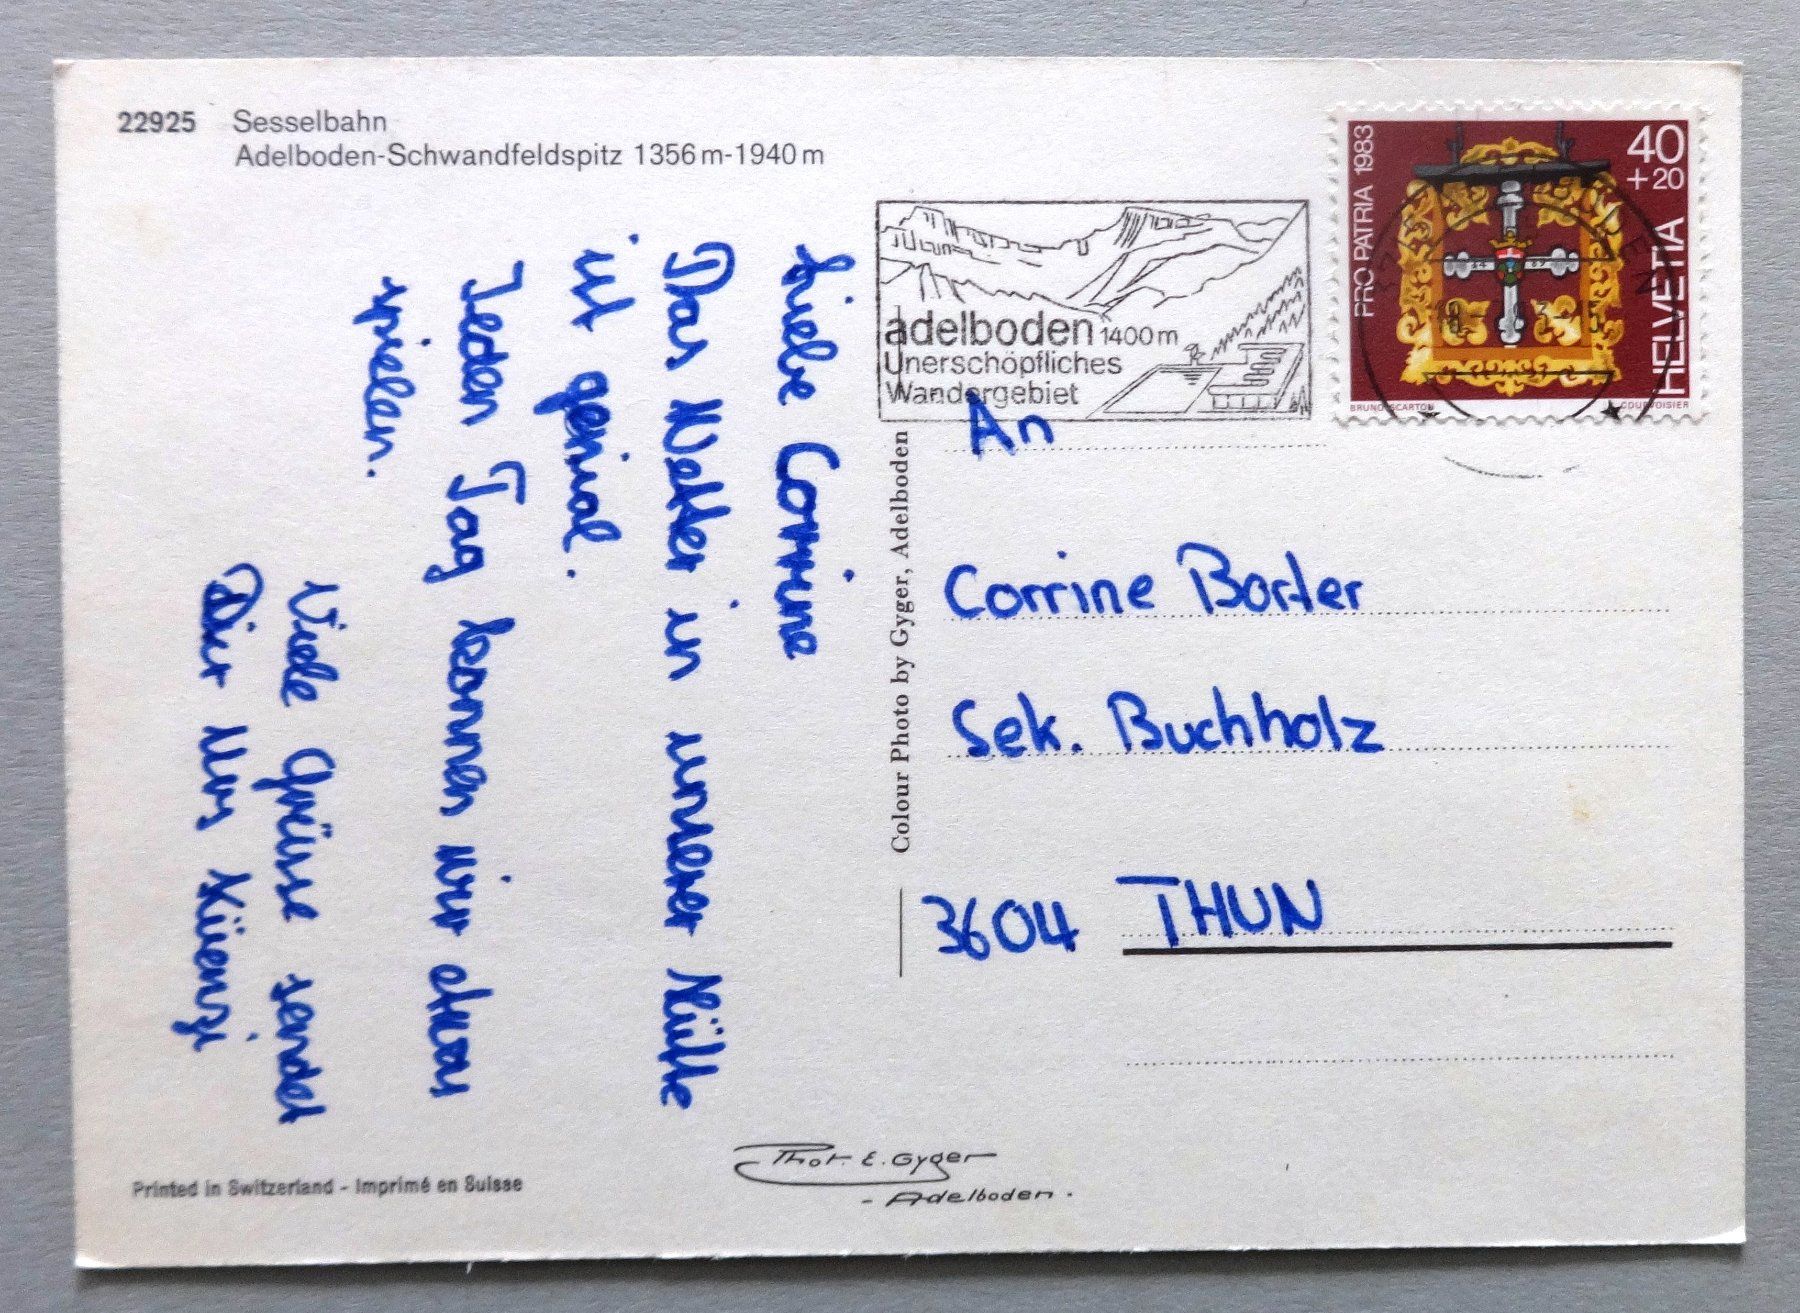 22925 Sesselbahn
Adelboden-Schwandfeldspitz 1356 m-1940 m
Liebe Corrine
Das Wetter in unserer Hütte
ist genial.
Jeden Tag konnen wir etwas
spielen.
Viele Grüsse sendet
Dir Urs Küenzi
Printed in Switzerland - Imprimé en Suisse
Colour Photo by Gyger, Adelboden
Phot. E. Gyger
- Adelboden.
adelboden 1400 m
Unerschöpfliches
Wandergebiet
PRO PATRIA 1983
40
+20
HELVETIA
BRUNO SCARTON
COURVOISIER
An
Corrine Borter
Sek. Buchholz
3604 THUN